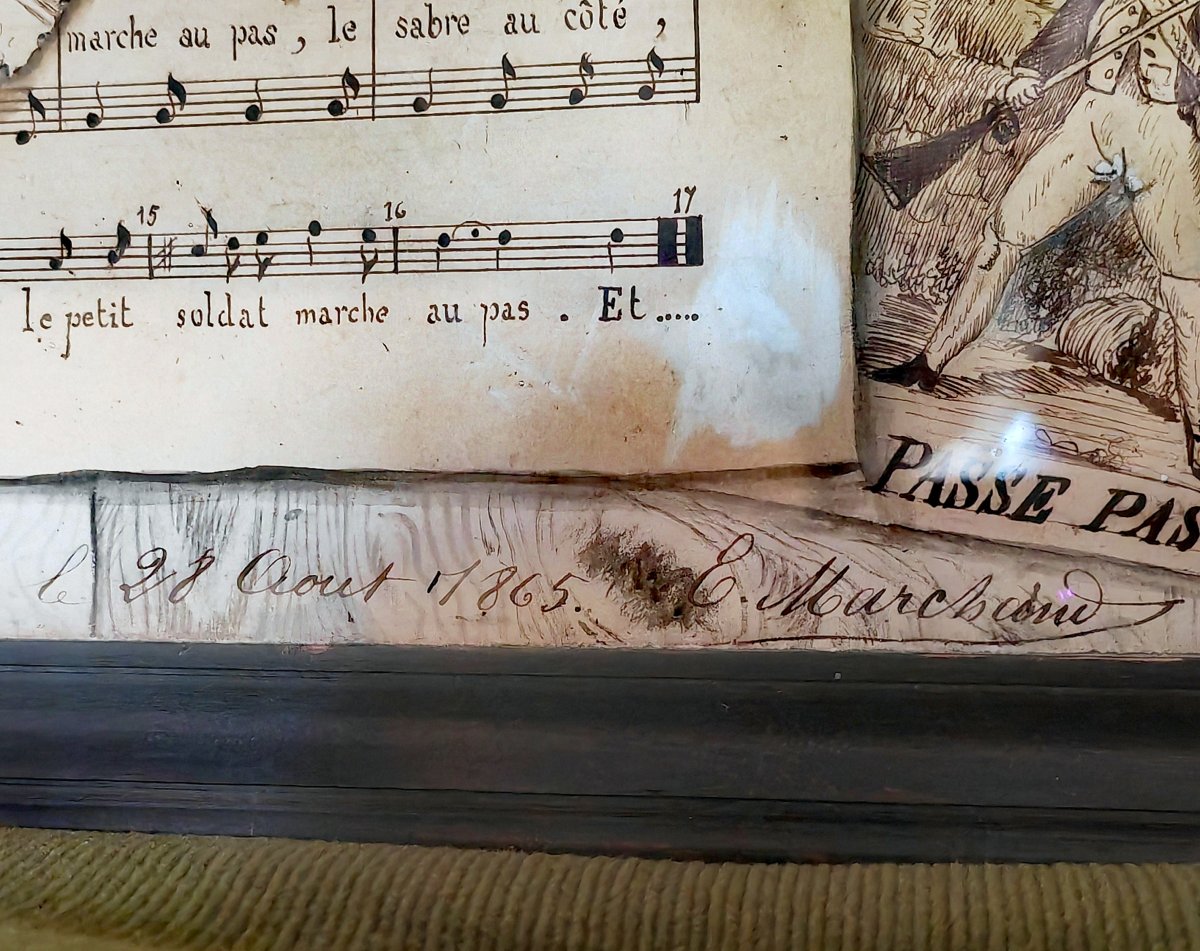 marche au pas, le sabre au côté,
15 16 17
le petit soldat marche au pas. Et.....
PASSE PAS
le 28 Aout 1865. E. Marchand